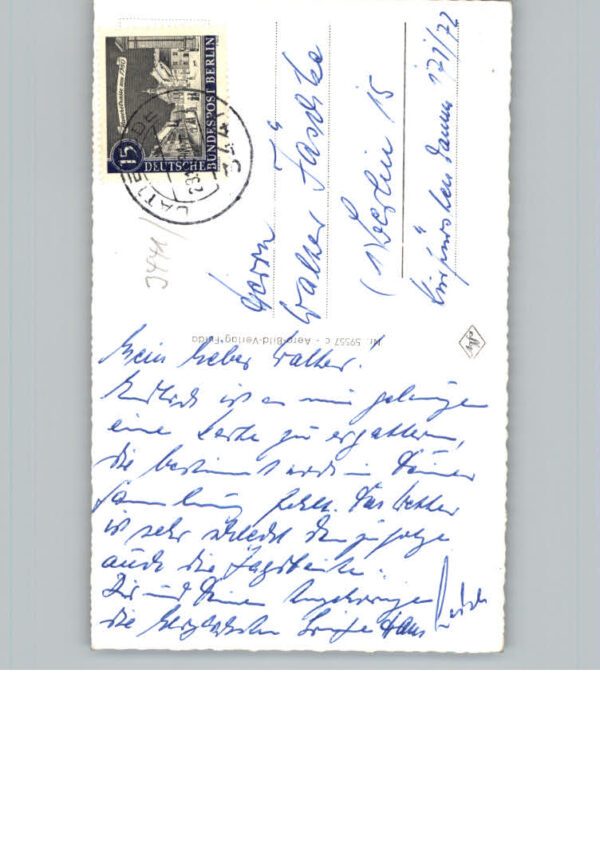 15
DEUTSCHE
BUNDESPOST BERLIN
3441
Herrn
Walter Jaschke
(1) Berlin 15
Damm 171/72
Nr. 59557 c - Aero-Bild-Verlag Fulda
Mein lieber Walter!
Endlich ist es mir gelungen
eine Karte zu ergattern,
die bestimmt noch in Deiner
Sammlung fehlt. Das Wetter
ist sehr schlecht demzufolge
auch die Jagdbeute.
Dir und Deinen Angehörigen
die herzlichsten Grüße Hans